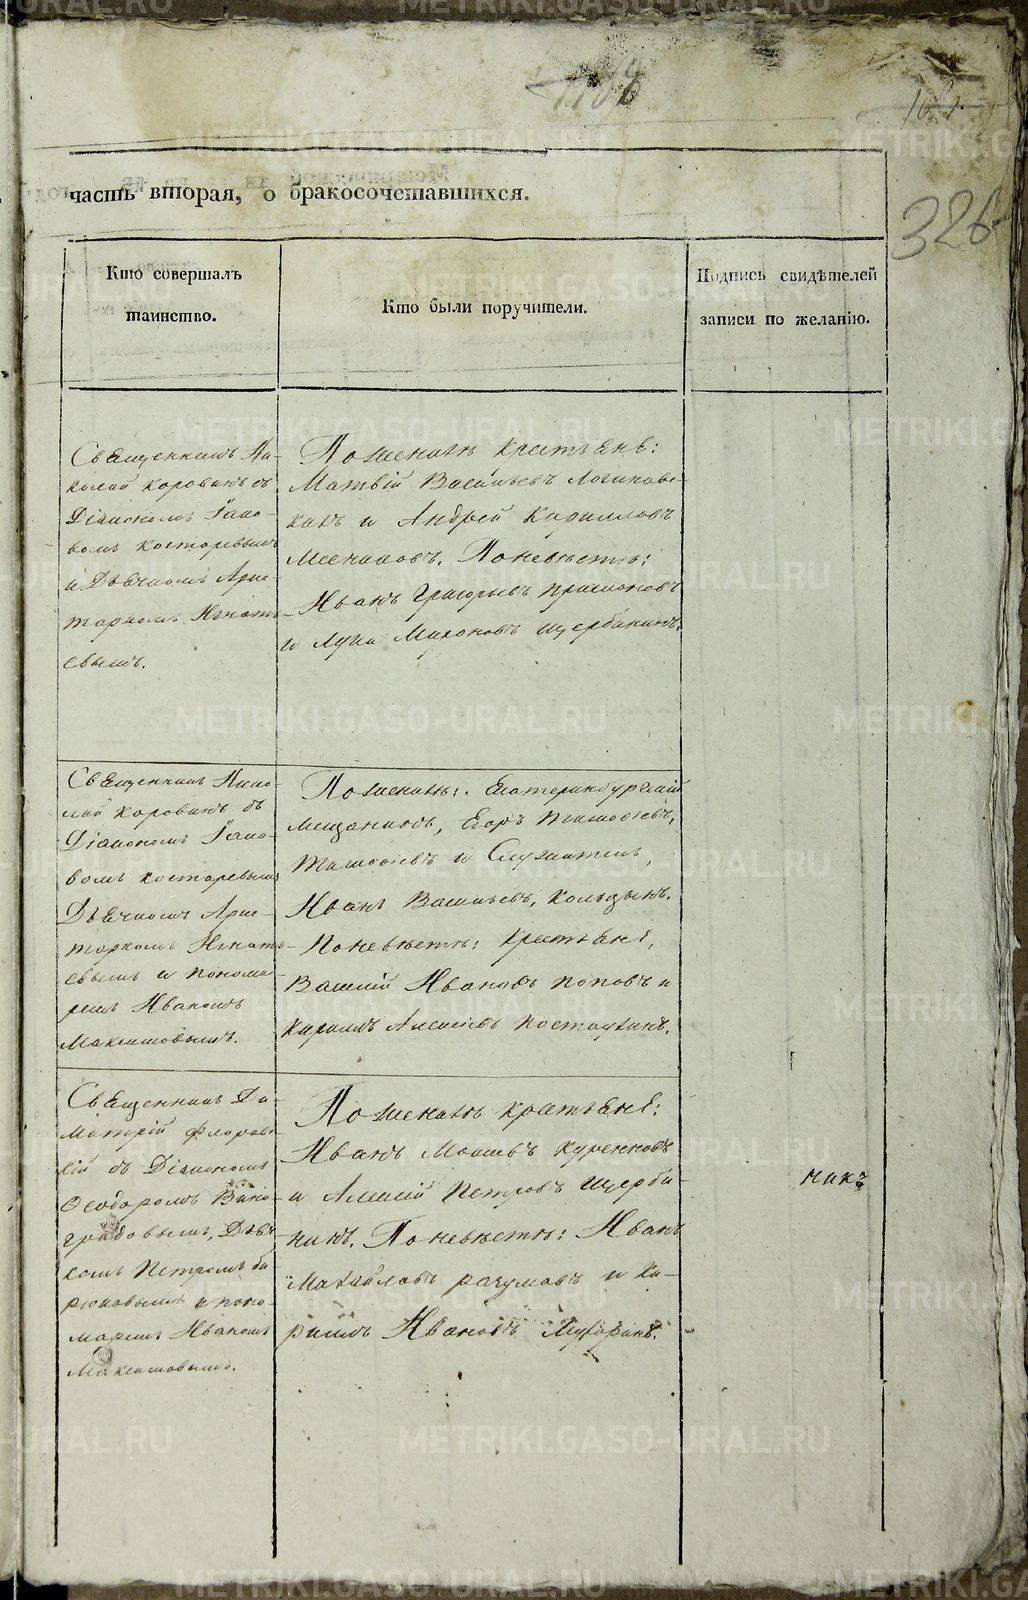 1108
326
часть вторая, о бракосочетавшихся.
Кто совершалъ
таинство.
Кто были поручители.
Подпись свидѣтелей
записи по желанію.
Священникъ Ни-
колай Коровинъ съ
Діакономъ Іако-
вомъ Костаревымъ
и Дьячкомъ Арис-
тархомъ Игнать-
евымъ.
По женихѣ крестьяне:
Матвій Васильевъ
и Андрей Кирилловъ
По невѣстѣ:
Иванъ Григорьевъ
и Лука Мироновъ Щербининъ.
Священникъ Нико-
лай Коровинъ съ
Діакономъ Іако-
вомъ Костаревымъ
Дьячкомъ Арис-
тархомъ Игнать-
евымъ и понома-
ремъ Иваномъ
Максимовымъ.
По женихѣ: Екатеринбургскій
мещанинъ, Егоръ Тимофіевъ,
Тимофіевъ и Служитель,
Иванъ Васильевъ,
По невѣстѣ: крестьяне,
Василій Ивановъ Поповъ и
Кирилъ Алексіевъ
Священникъ Ди-
митрій Флоровс-
кій съ Діакономъ
Феодоромъ Вино-
градовымъ, Дьяч-
комъ Петромъ Би-
рюковымъ и поно-
маремъ Иваномъ
Максимовымъ.
По женихѣ крестьяне:
Иванъ Моисеевъ Куренновъ
и Алексій Петровъ Щерби-
нинъ. По невѣстѣ: Иванъ
Михайловъ Разумовъ и Ки-
рилъ Ивановъ
METRIKI.GASO-URAL.RU